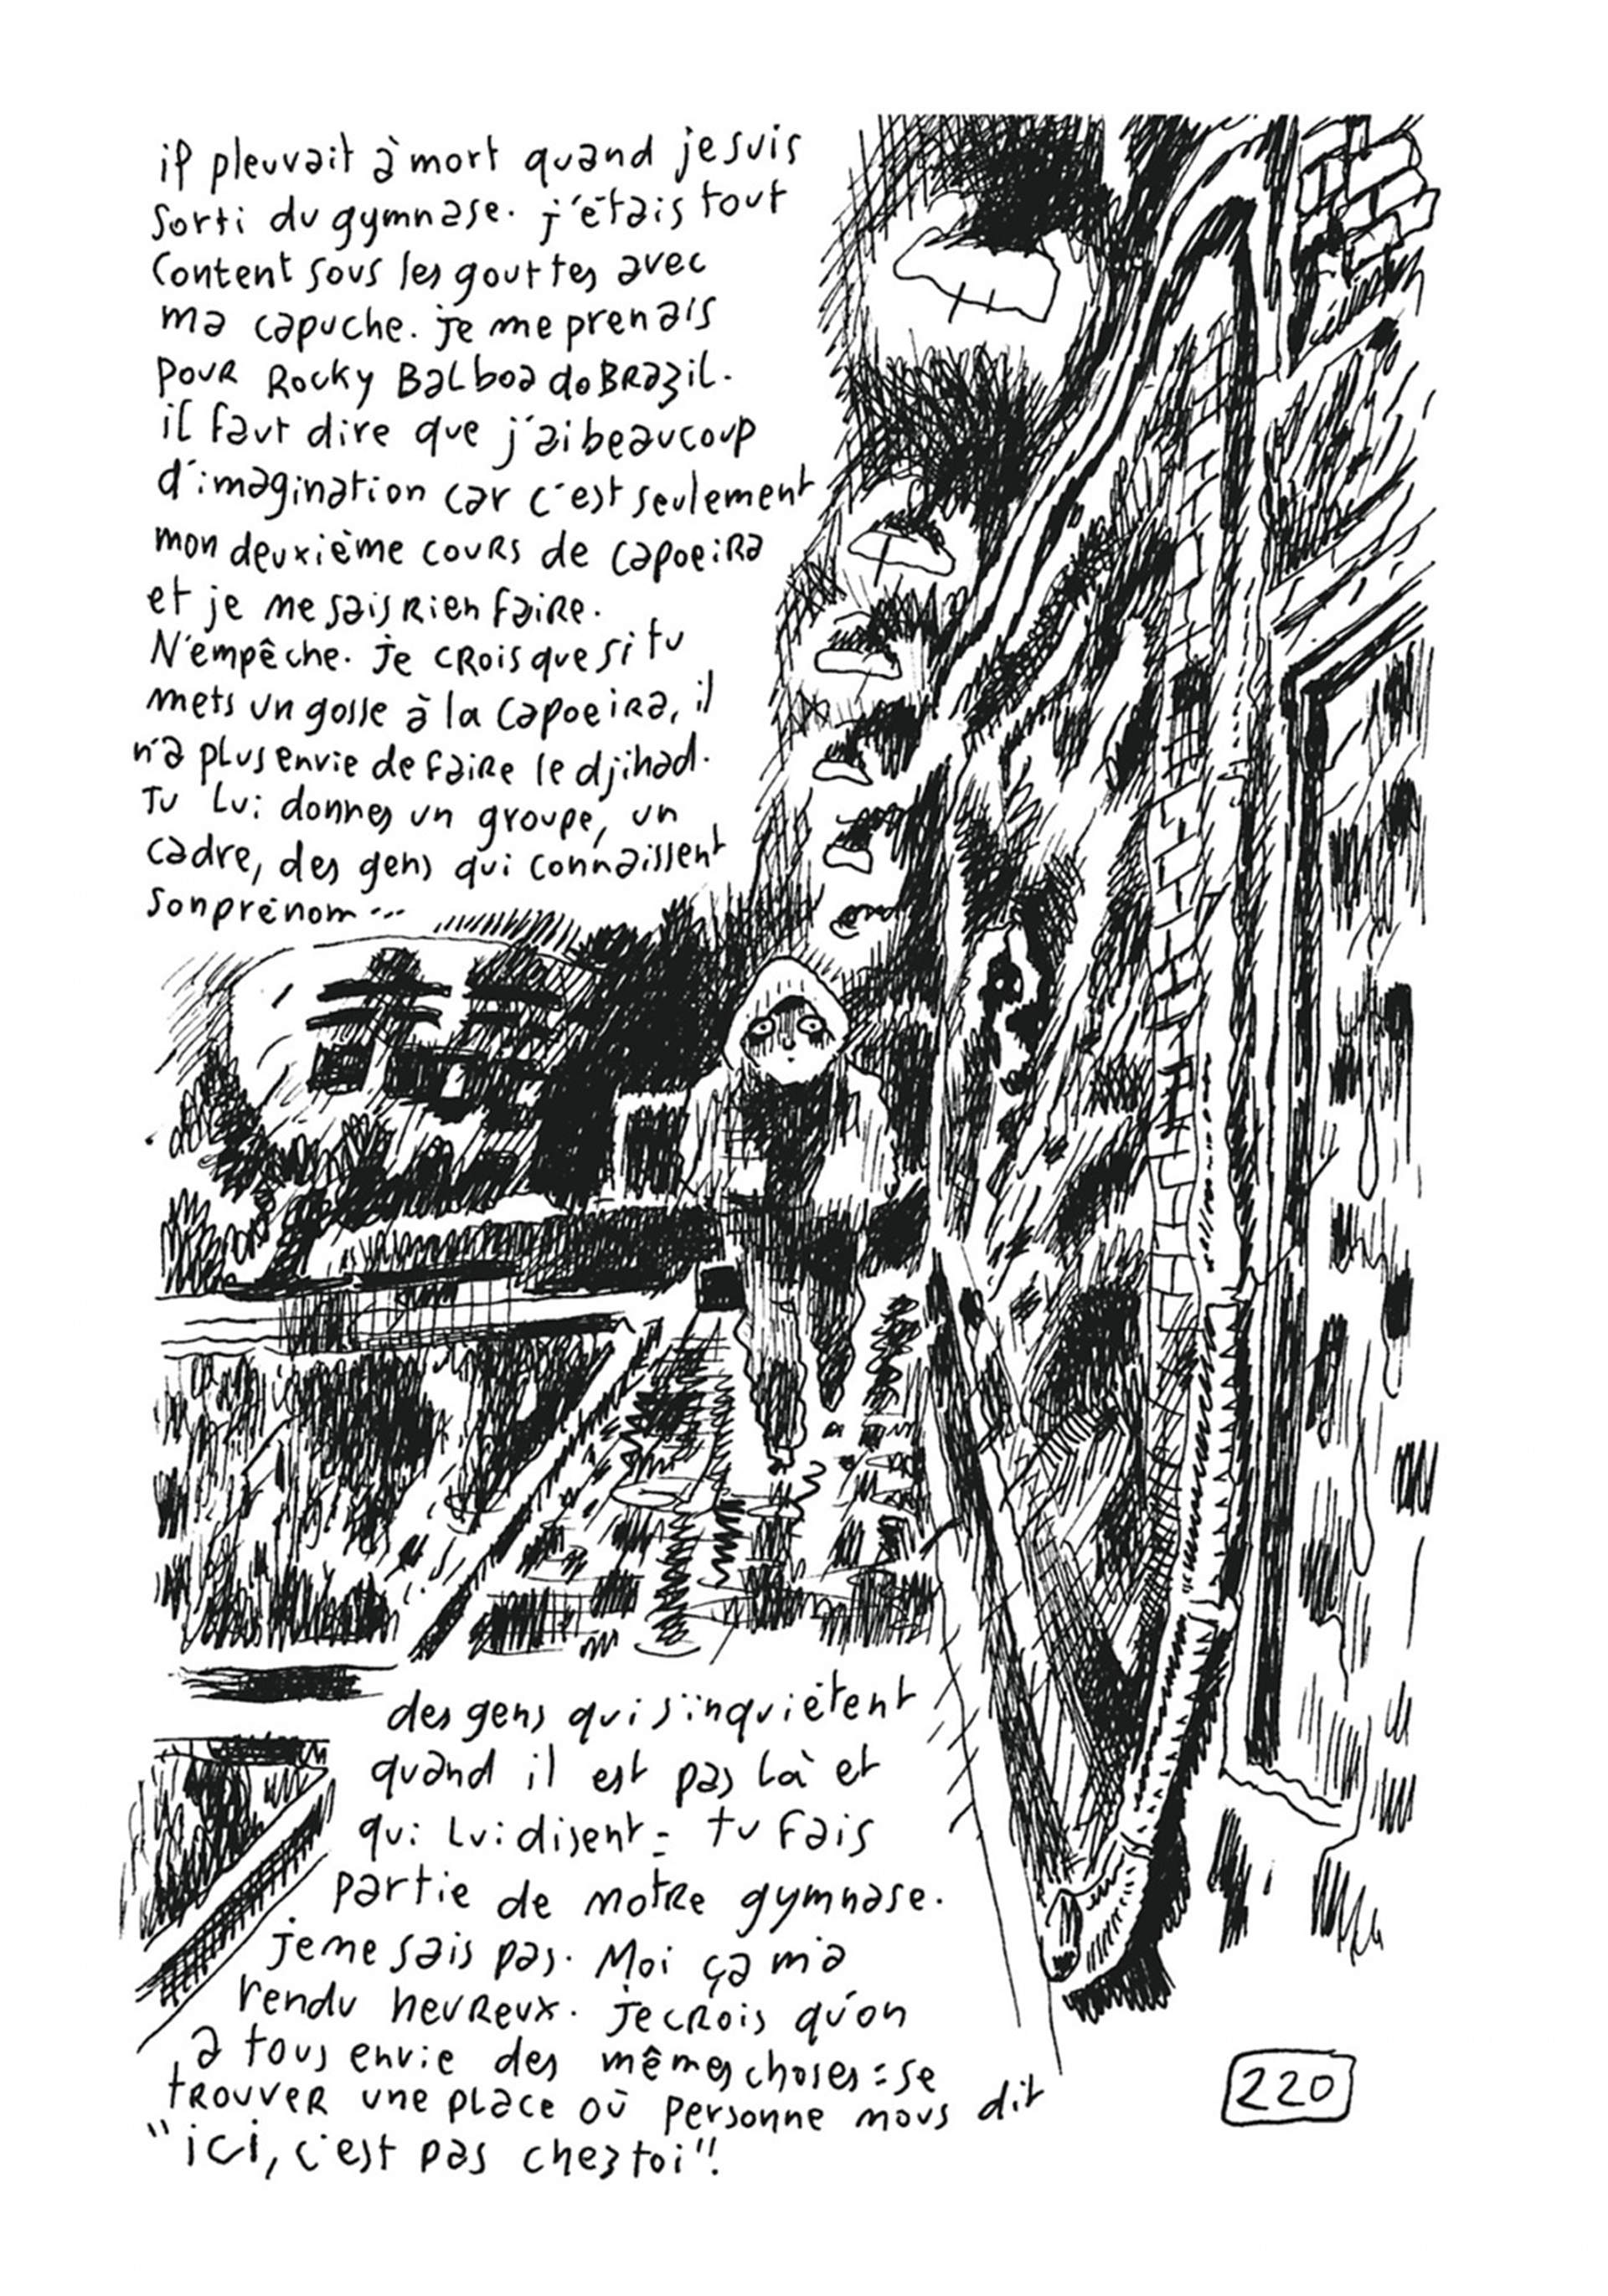 il pleuvait à mort quand je suis
sorti du gymnase. j'étais tout
content sous les gouttes avec
ma capuche. je me prenais
pour Rocky Balboa do Brazil.
il faut dire que j'ai beaucoup
d'imagination car c'est seulement
mon deuxième cours de capoeira
et je ne sais rien faire.
N'empêche. je crois que si tu
mets un gosse à la capoeira, il
n'a plus envie de faire le djihad.
Tu lui donnes un groupe, un
cadre, des gens qui connaissent
son prénom...
des gens qui s'inquiètent
quand il est pas là et
qui lui disent : tu fais
partie de notre gymnase.
je ne sais pas. Moi ça m'a
rendu heureux. je crois qu'on
a tous envie des mêmes choses : se
trouver une place où personne nous dit
"ici, c'est pas chez toi".
220